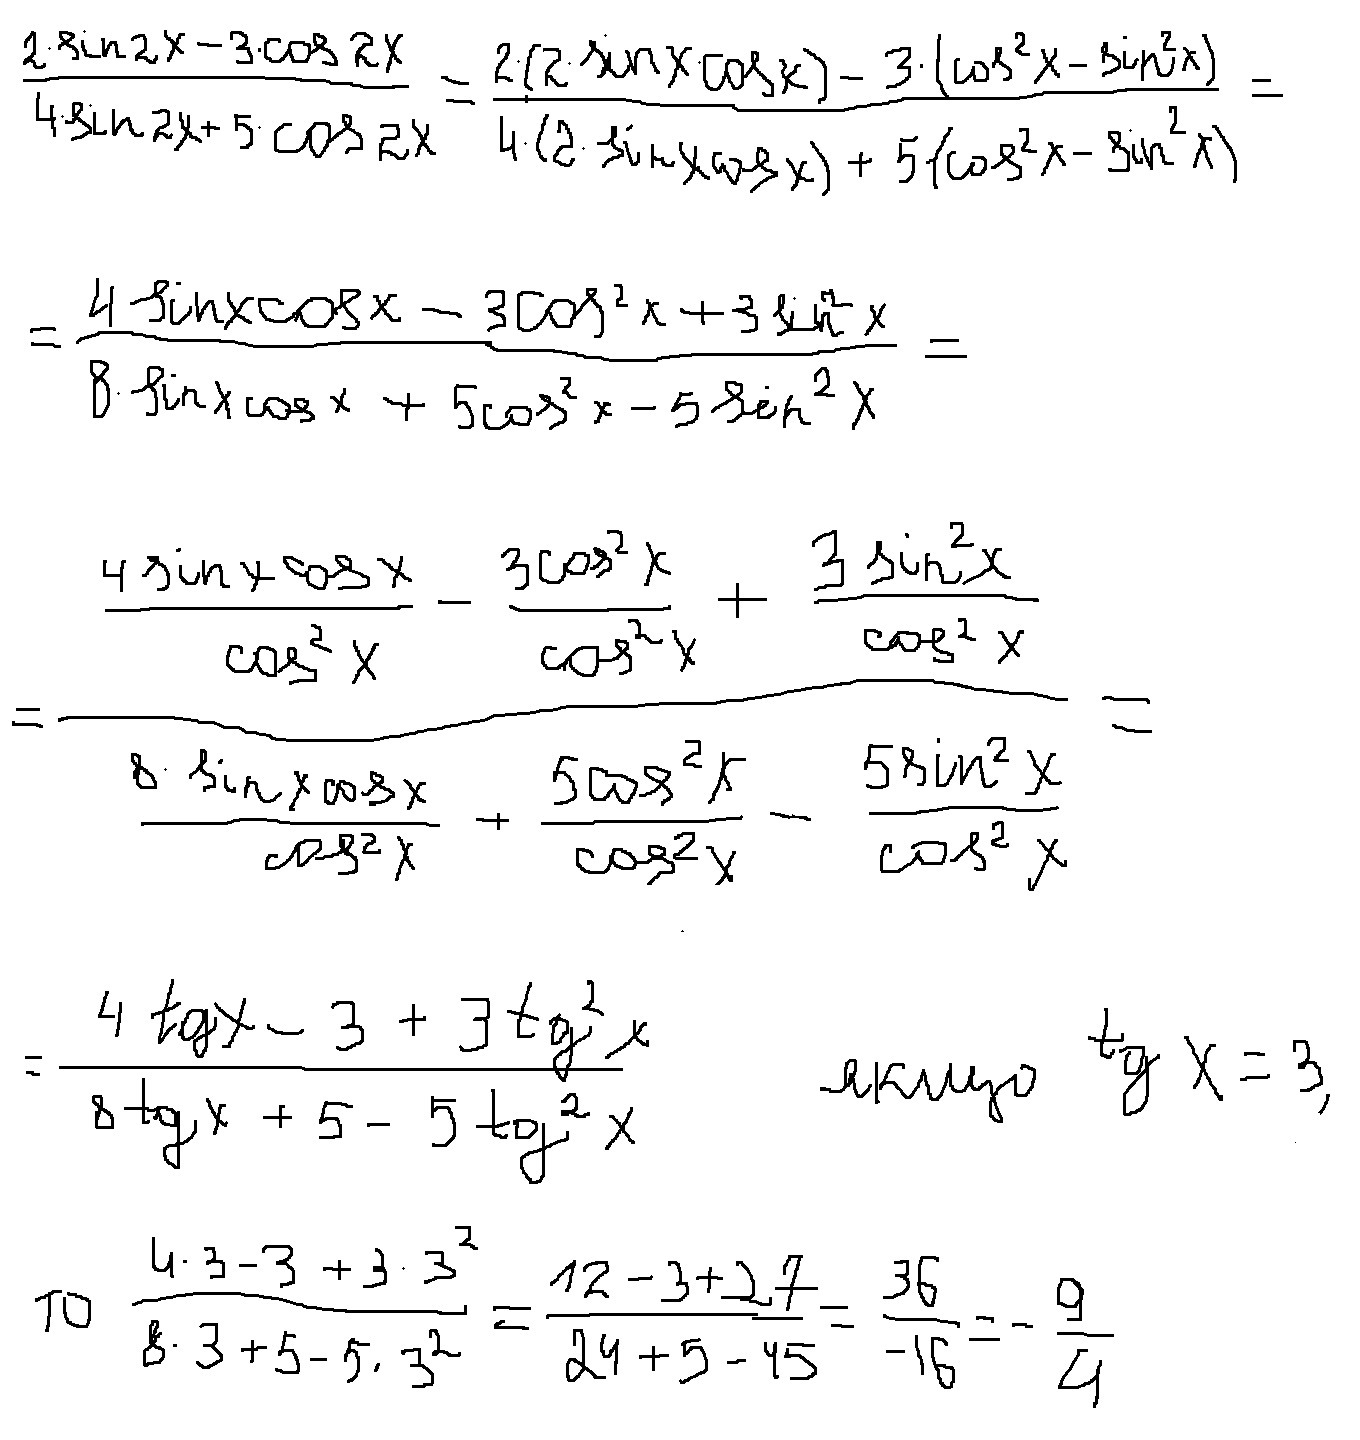 (2·sin2x − 3·cos2x)/(4·sin2x + 5·cos2x) = (2·(2·sinx·cosx) − 3·(cos²x − sin²x))/(4·(2·sinxcosx) + 5(cos²x − sin²x)) =
= (4·sinxcosx − 3cos²x + 3sin²x)/(8·sinxcosx + 5cos²x − 5sin²x) =
= ((4sinxcosx)/(cos²x) − (3cos²x)/(cos²x) + (3sin²x)/(cos²x))/((8·sinxcosx)/(cos²x) + (5cos²x)/(cos²x) − (5sin²x)/(cos²x)) =
= (4tgx − 3 + 3tg²x)/(8tgx + 5 − 5tg²x) якщо tgx = 3,
то (4·3 − 3 + 3·3²)/(8·3 + 5 − 5·3²) = (12 − 3 + 27)/(24 + 5 − 45) = 36/−16 = −9/4